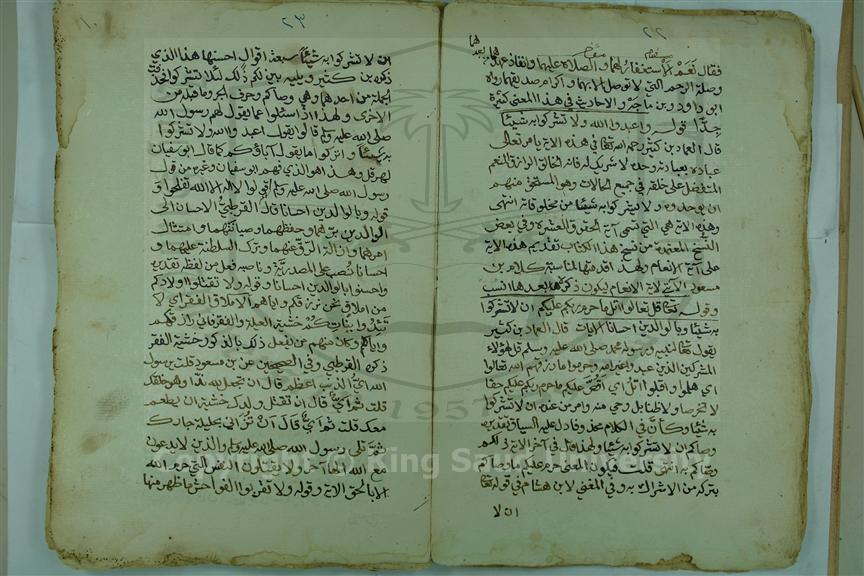 ٢٢
فقال نعم الاستغفار لهما والصلاة عليهما وانفاذ عهدهما
بعدهما
وصلة الرحم التي لا توصل الا بهما واكرام صديقهما رواه
ابو داود وبن ماجة والاحاديث في هذا المعنى كثيرة
جدا قوله واعبدوا الله ولا تشركوا به شيئا
قال العماد بن كثير رحمه الله تعالى في هذه الاية يامر تعالى
عباده بعبادته وحده لا شريك له فانه الخالق الرازق المنعم
المتفضل على خلقه في جميع الحالات وهو المستحق منهم
ان يوحدوه ولا يشركوا به شيئا من مخلوقاته انتهى
وهذه الاية هي التي تسمى آية الحقوق العشرة وفي بعض
النسخ المعتمدة من نسخ هذا الكتاب تقديم هذه الاية
على آية الانعام ولهذا قدمتها لمناسبة كلام بن
مسعود الآتي لاية الانعام ليكون ذكره بعدها انسب
وقوله تعالى قل تعالوا اتل ما حرم ربكم عليكم ان لا تشركوا
به شيئا وبالوالدين احسانا الايات قال العماد بن كثير
يقول تعالى لنبيه ورسوله محمد صلى الله عليه وسلم قل لهؤلاء
المشركين الذين عبدوا غير الله وحرموا ما رزقهم الله تعالوا
اي هلموا واقبلوا اتل اي اقص عليكم ما حرم ربكم عليكم حقا
لا تخرصا ولا ظنا بل وحي منه وامر من عنده ان لا تشركوا
به شيئا وكان في الكلام محذوفا دل عليه السياق تقديره
وصاكم ان لا تشركوا به شيئا ولهذا قال في آخر الاية ذلكم
وصاكم به انتهى قلت فيكون المعنى حرم عليكم ما وصاكم
بتركه من الاشراك به وفي المغني لابن هشام في قوله تعالى
ان لا
٢٣
ان لا تشركوا به شيئا سبعة اقوال احسنها هذا الذي
ذكره بن كثير ويليه بين لكم ذلك لئلا تشركوا فحذفت
الجملة من احدهما وهي وصاكم وحرف الجر وما قبله من
الاخرى ولهذا اذا سئلوا عما يقول لهم رسول الله
صلى الله عليه وسلم قالوا يقول اعبدوا الله ولا تشركوا
به شيئا واتركوا ما يقول آباؤكم كما قال ابو سفيان
لهرقل وهذا هو الذي فهم ابو سفيان وغيره من قول
رسول الله صلى الله عليه وسلم قولوا لا اله الا الله تفلحوا
قوله وبالوالدين احسانا قال القرطبي الاحسان الى
الوالدين برهما وحفظهما وصيانتهما وامتثال
امرهما وازالة الرق عنهما وترك السلطنة عليهما و
احسانا نصب على المصدرية وناصبه فعل من لفظه تقديره
واحسنوا بالوالدين احسانا وقوله ولا تقتلوا اولادكم
من املاق نحن نرزقكم واياهم الاملاق الفقر اي لا
تئدوا بناتكم خشية العيلة والفقر فاني رازقكم
واياهم وكان منهم من يفعل ذلك بالذكور خشية الفقر
ذكره القرطبي وفي الصحيحين عن بن مسعود قلت يرسول
الله اي الذنب اعظم قال ان تجعل لله ندا وهو خلقك
قلت ثم اي قال ان تقتل ولدك خشية ان يطعم
معك قلت ثم اي قال ان تزاني بحليلة جارك
ثم تلى رسول الله صلى الله عليه وسلم والذين لا يدعون
مع الله الها آخر ولا يقتلون النفس التي حرم الله
الا بالحق الاية وقوله ولا تقربوا الفواحش ما ظهر منها
Copyright © King Saud University
1957